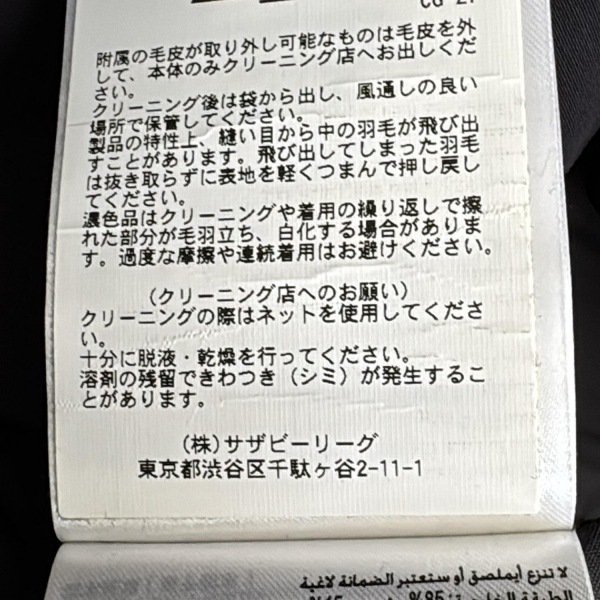 CG 27
附属の毛皮が取り外し可能なものは毛皮を外
して、本体のみクリーニング店へお出しくだ
さい。
クリーニング後は袋から出し、風通しの良い
場所で保管してください。
製品の特性上、縫い目から中の羽毛が飛び出
すことがあります。飛び出してしまった羽毛
は抜き取らずに表地を軽くつまんで押し戻し
てください。
濃色品はクリーニングや着用の繰り返しで擦
れた部分が毛羽立ち、白化する場合がありま
す。過度な摩擦や連続着用はお避けください。
（クリーニング店へのお願い）
クリーニングの際はネットを使用してくださ
い。
十分に脱液・乾燥を行ってください。
溶剤の残留できわつき（シミ）が発生するこ
とがあります。
（株）サザビーリーグ
東京都渋谷区千駄ヶ谷2-11-1
لا تنزع أيملصق أو ستعتبر الضمانة لاغية